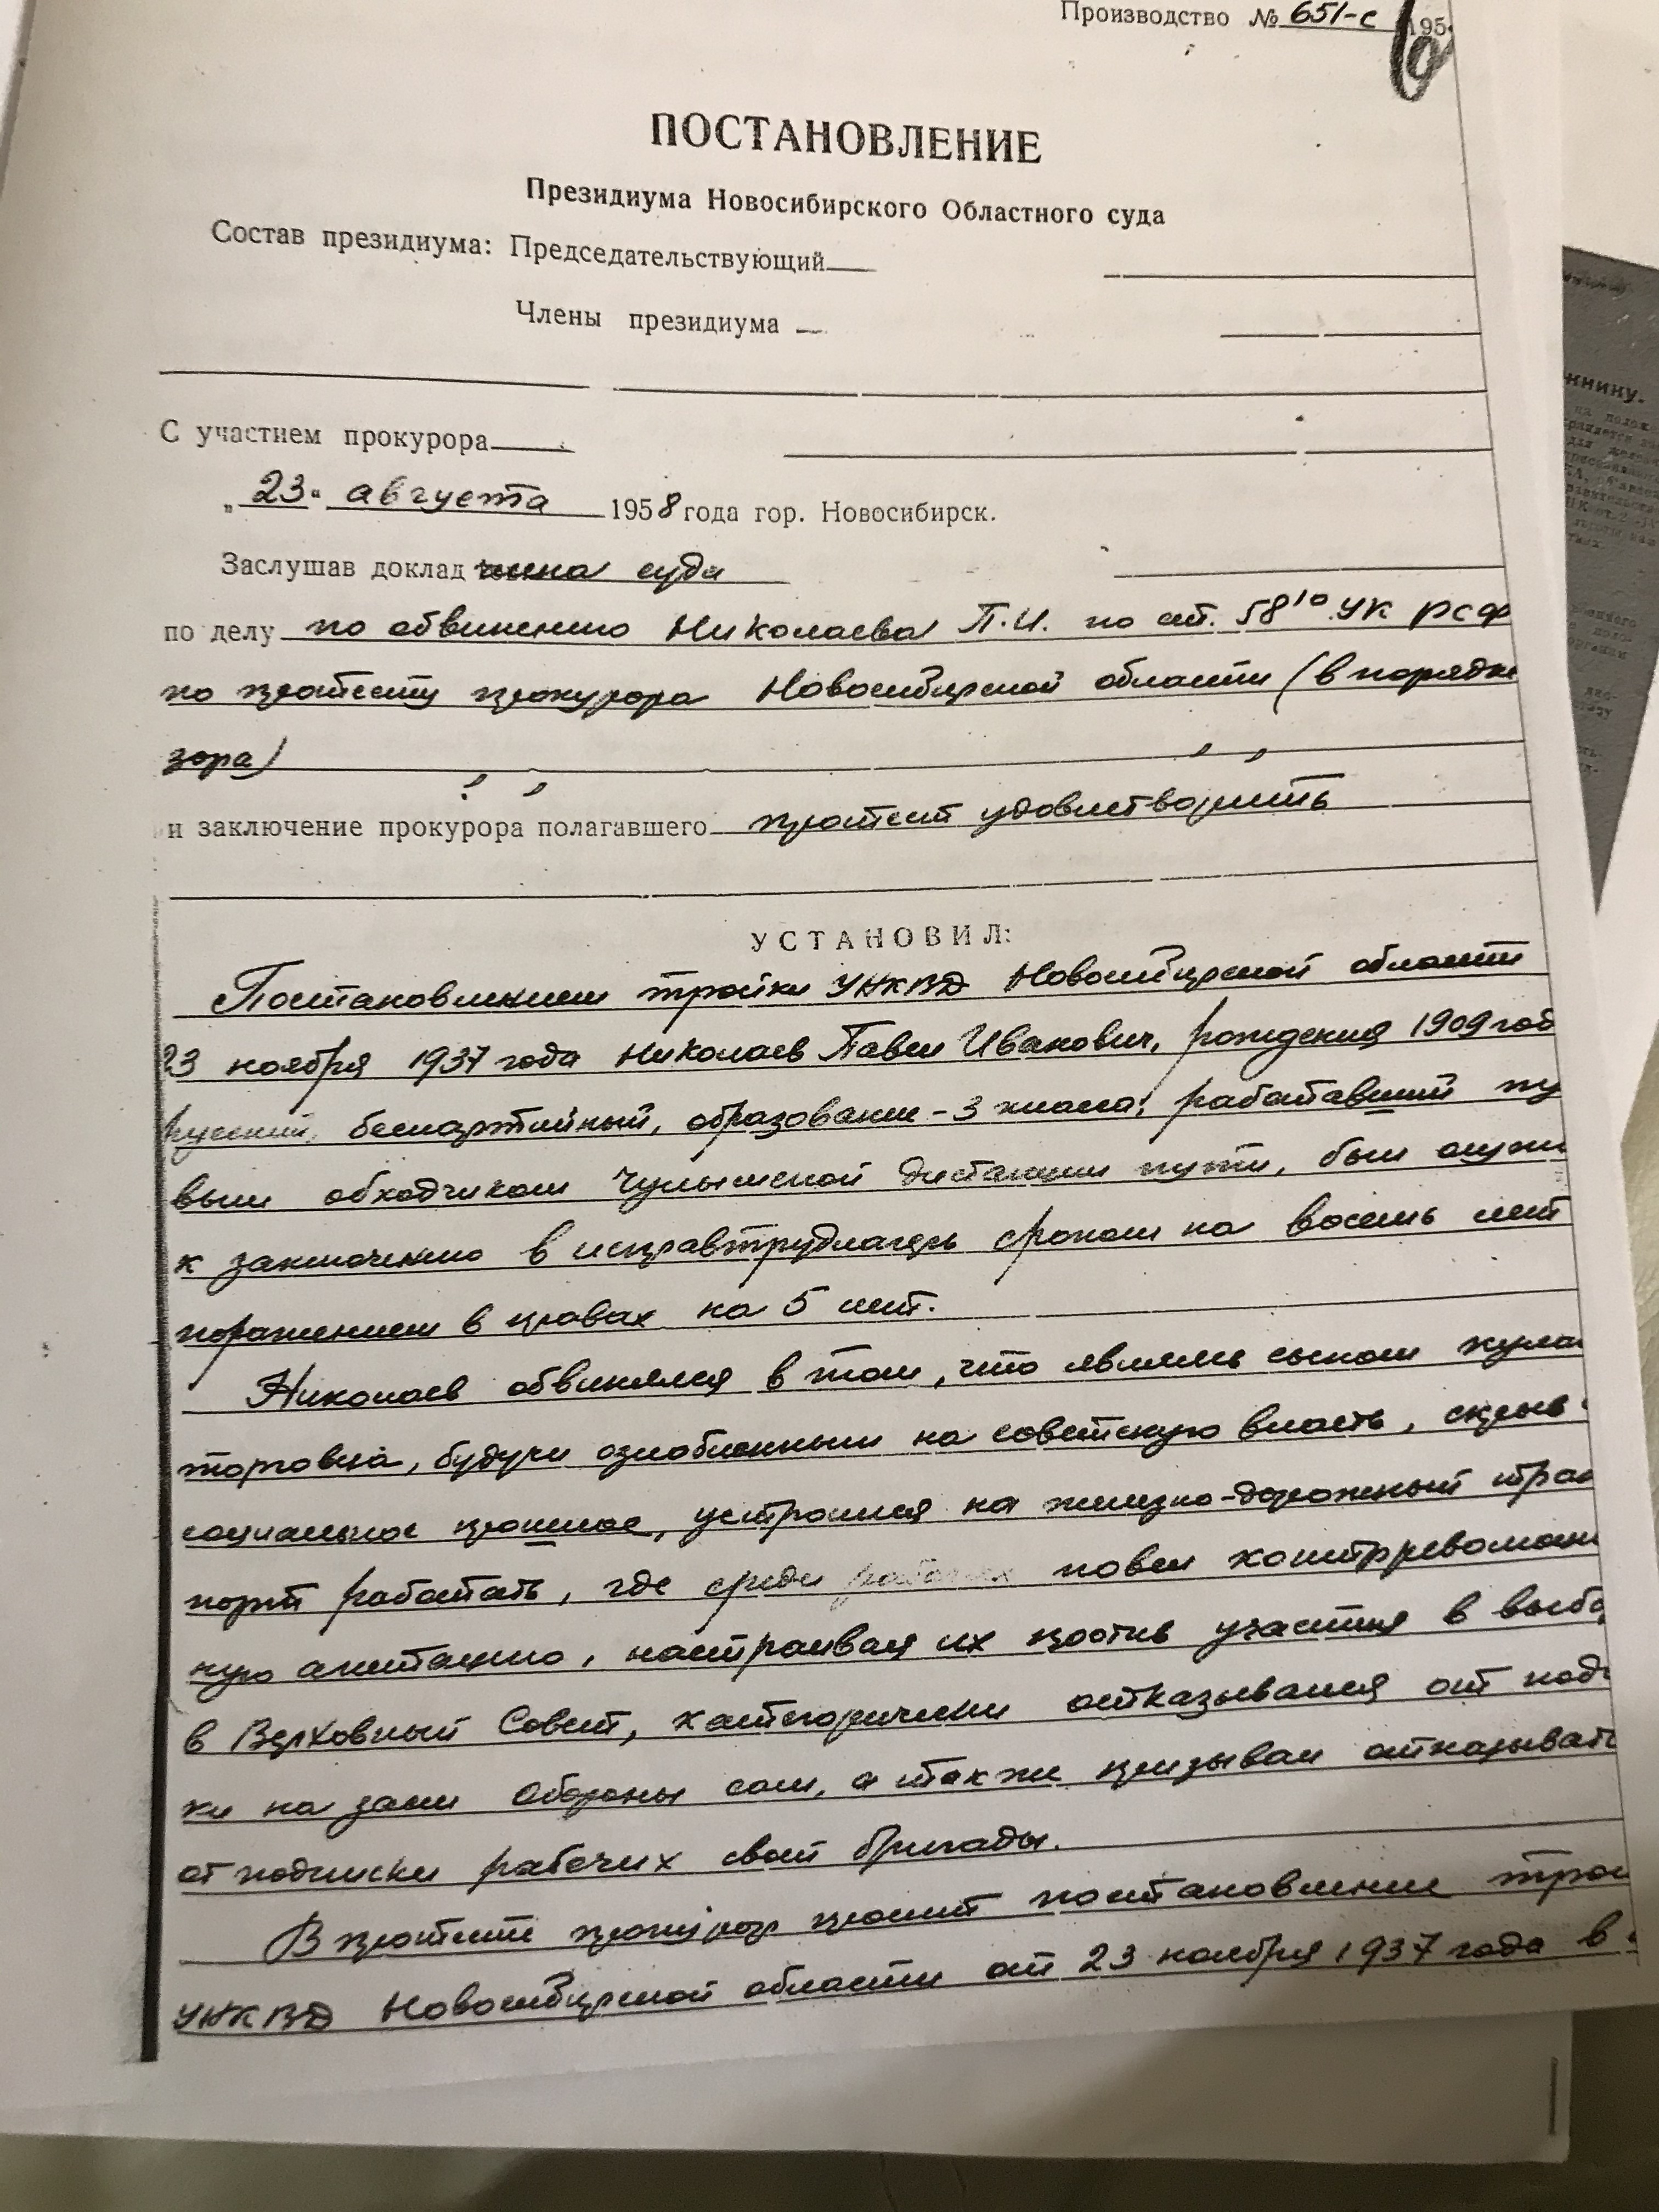 Производство № 651-с 195
ПОСТАНОВЛЕНИЕ
Президиума Новосибирского Областного суда
Состав президиума: Председательствующий
Члены президиума
С участием прокурора
„23“ августа 1958 года гор. Новосибирск.
Заслушав доклад члена суда
по делу по обвинению Николаева П.И. по ст. 58¹⁰ УК РСФ
по протесту прокурора Новосибирской области (в порядке
зора)
и заключение прокурора полагавшего протест удовлетворить
УСТАНОВИЛ:
Постановлением тройки УНКВД Новосибирской области
23 ноября 1937 года Николаев Павел Иванович, рождения 1909 год
русский, беспартийный, образование - 3 класса, работавший пу
вым обходчиком Чулымской дистанции пути, был осужд
к заключению в исправтрудлагерь сроком на восемь лет
поражением в правах на 5 лет.
Николаев обвинялся в том, что являясь сыном кулак
торговца, будучи озлобленным на советскую власть, скрыв
социальное прошлое, устроился на железно-дорожный тран
порт работать, где среди рабочих повел контрреволюци
ную агитацию, настраивая их против участия в выбо
в Верховный Совет, категорически отказывался от подп
ки на заем Обороны сам, а также призывал отказывать
от подписки рабочих своей бригады.
В протесте прокурор просит постановление трой
УНКВД Новосибирской области от 23 ноября 1937 года в
жнину.